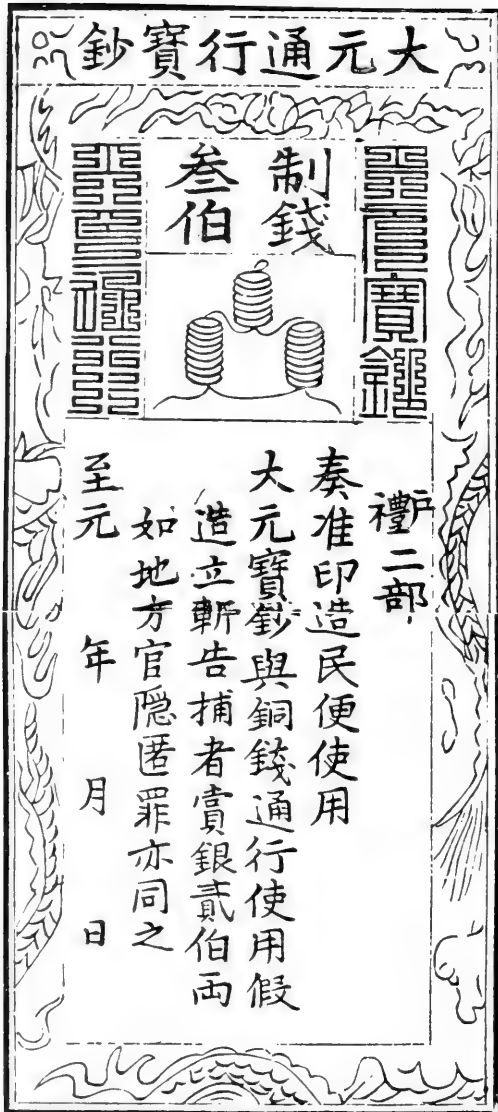 大元通行寶鈔
制錢
叁伯
户禮二部
奏准印造民便使用
大元寶鈔與銅錢通行使用假
造立斬告捕者賞銀貳伯両
如地方官隠匿罪亦同之
至元 年 月 日